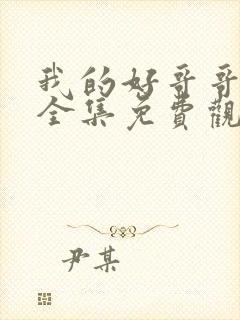 我的好哥哥
全集免費觀
尹某